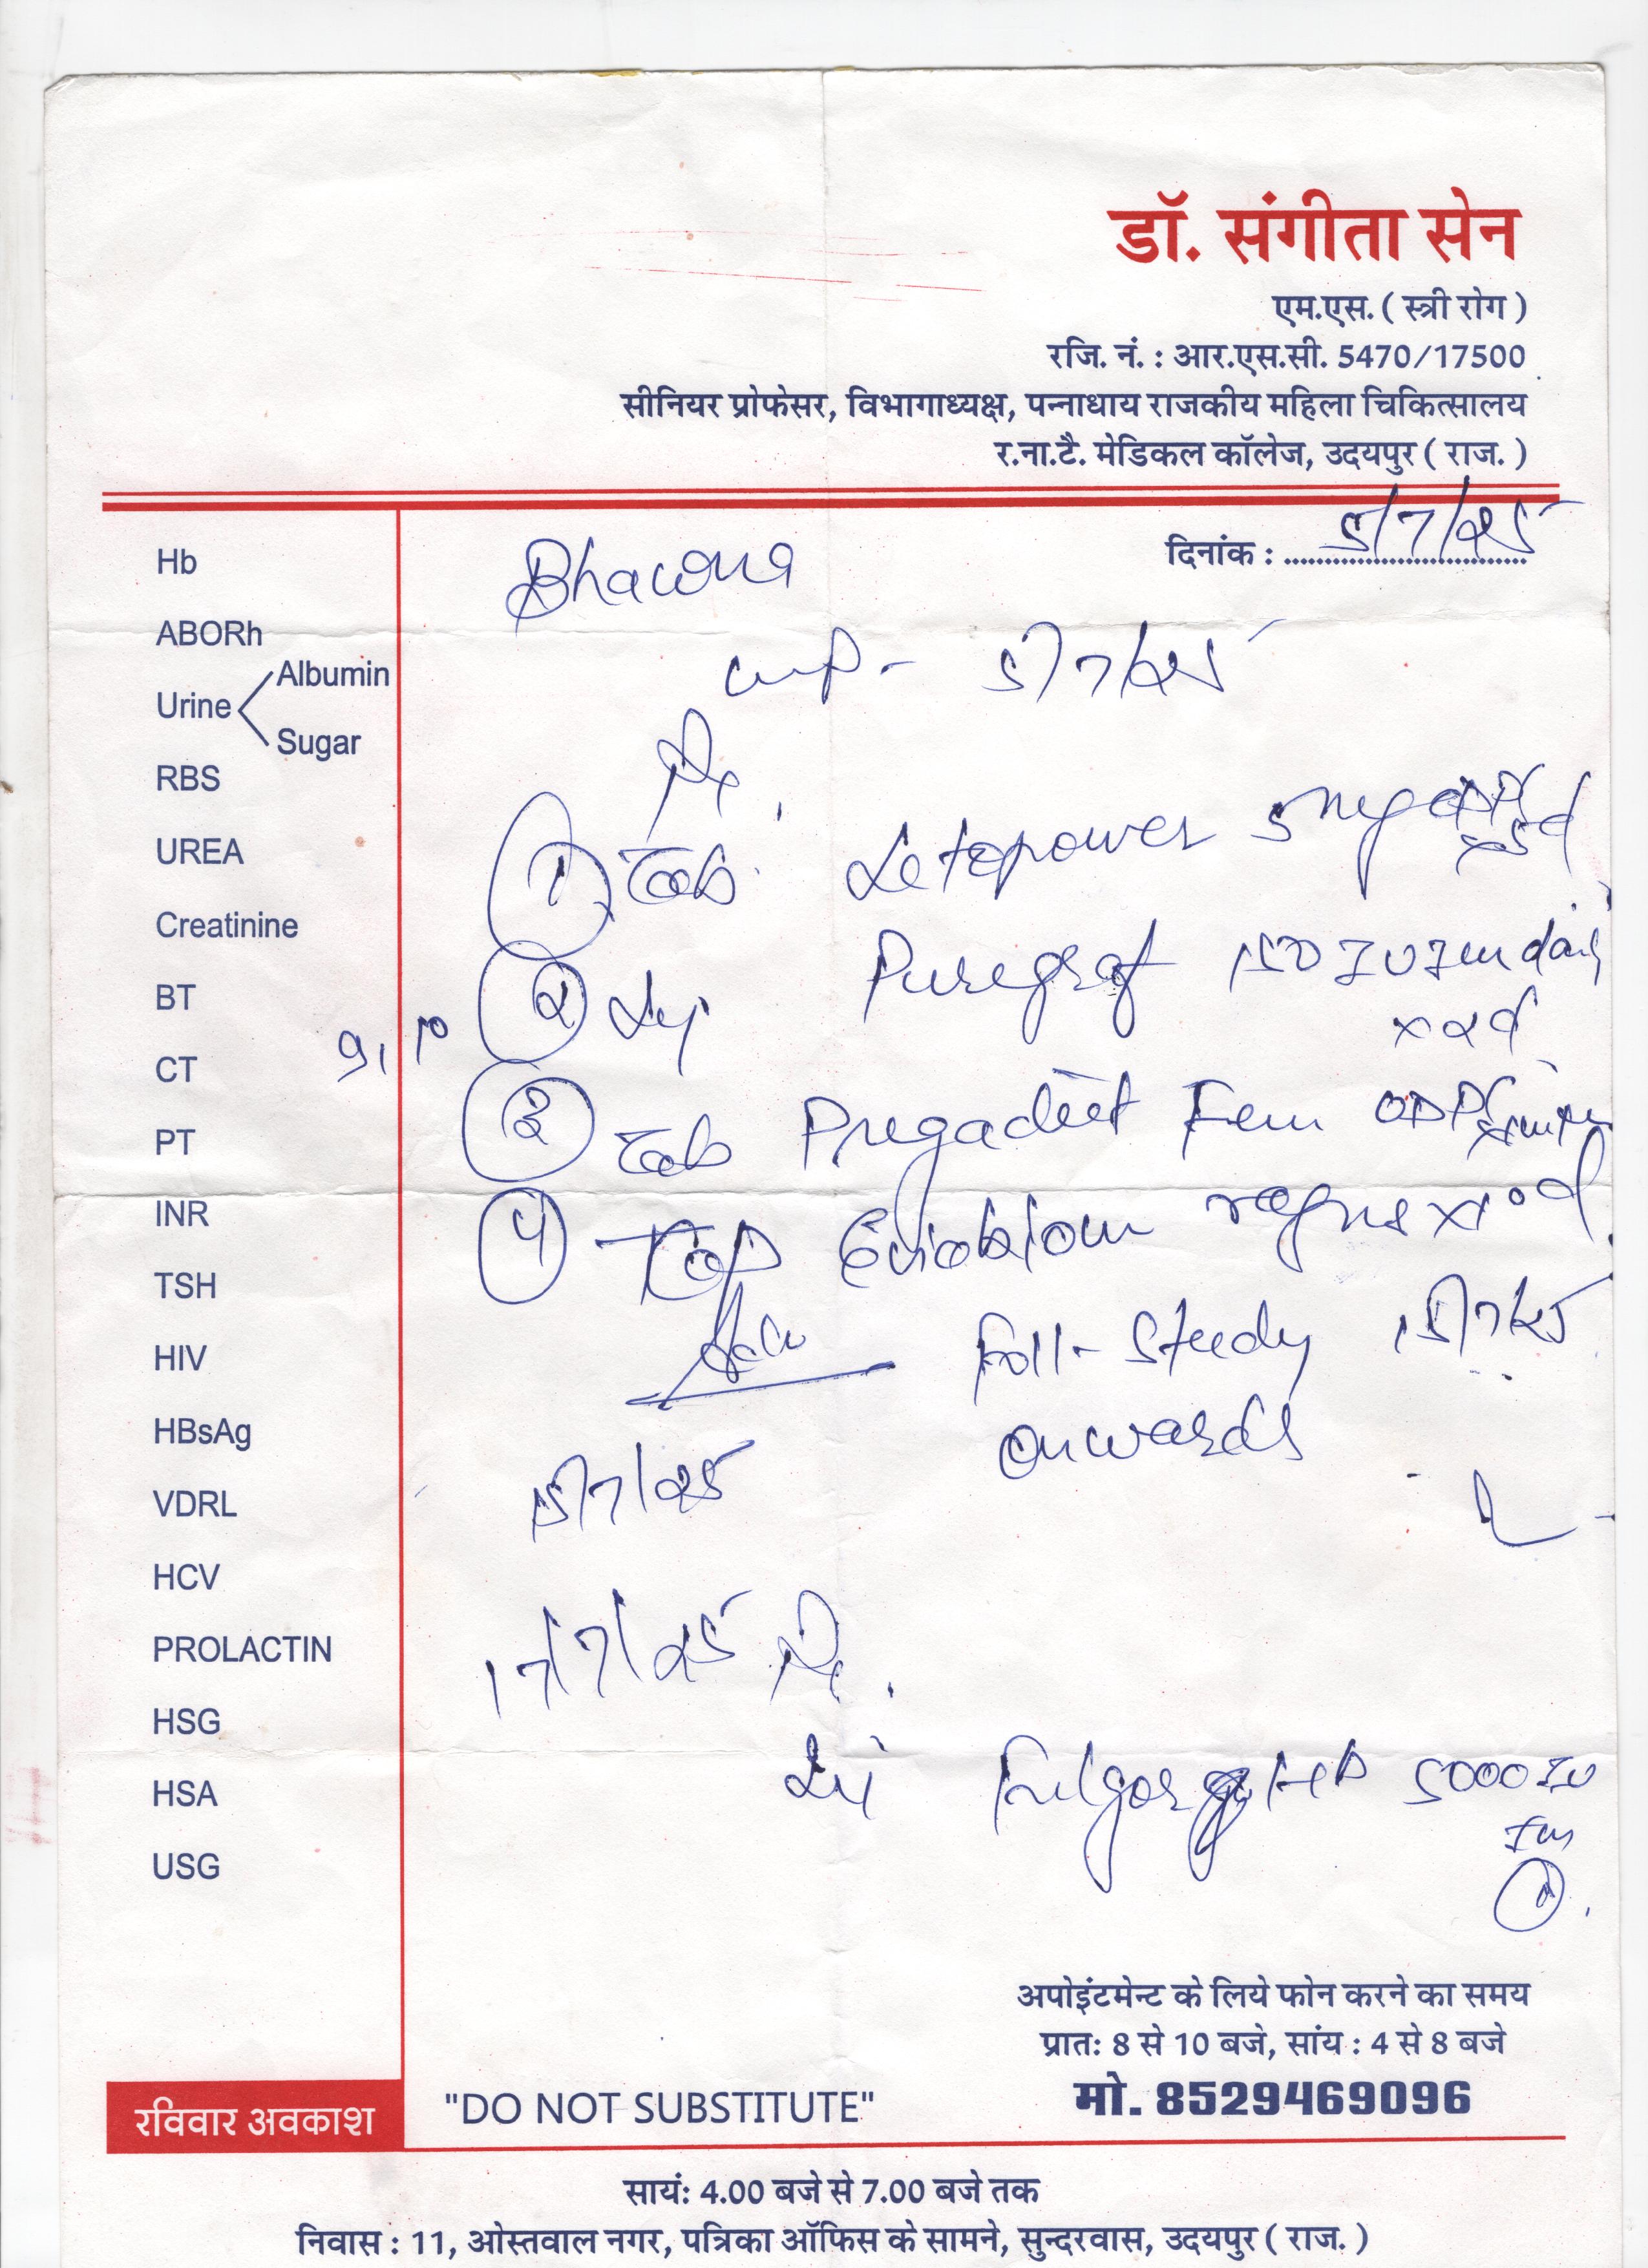 डॉ. संगीता सेन
एम.एस. ( स्त्री रोग )
रजि. नं. : आर.एस.सी. 5470/17500
सीनियर प्रोफेसर, विभागाध्यक्ष, पन्नाधाय राजकीय महिला चिकित्सालय
र.ना.टै. मेडिकल कॉलेज, उदयपुर ( राज. )
दिनांक : 5/7/25
Hb
ABORh
Urine Albumin
Sugar
RBS
UREA
Creatinine
BT
CT
PT
INR
TSH
HIV
HBsAg
VDRL
HCV
PROLACTIN
HSG
HSA
USG
Bhawna
LMP - 5/7/25
Rx
1 Tab Letopower 5mg OD x 5d
2 Inj Puregraf 150 IU IM daily
x 2d
9, 10
3 Tab Pregadiet Fem OD
4 x 10d
Adv Foll-Study 15/7/25
onwards
15/7/25
17/7/25 Rx
Inj HP 5000 IU
IM
1
अपोइंटमेन्ट के लिये फोन करने का समय
प्रातः 8 से 10 बजे, सांय : 4 से 8 बजे
मो. 8529469096
रविवार अवकाश
"DO NOT SUBSTITUTE"
सायं: 4.00 बजे से 7.00 बजे तक
निवास : 11, ओस्तवाल नगर, पत्रिका ऑफिस के सामने, सुन्दरवास, उदयपुर ( राज. )